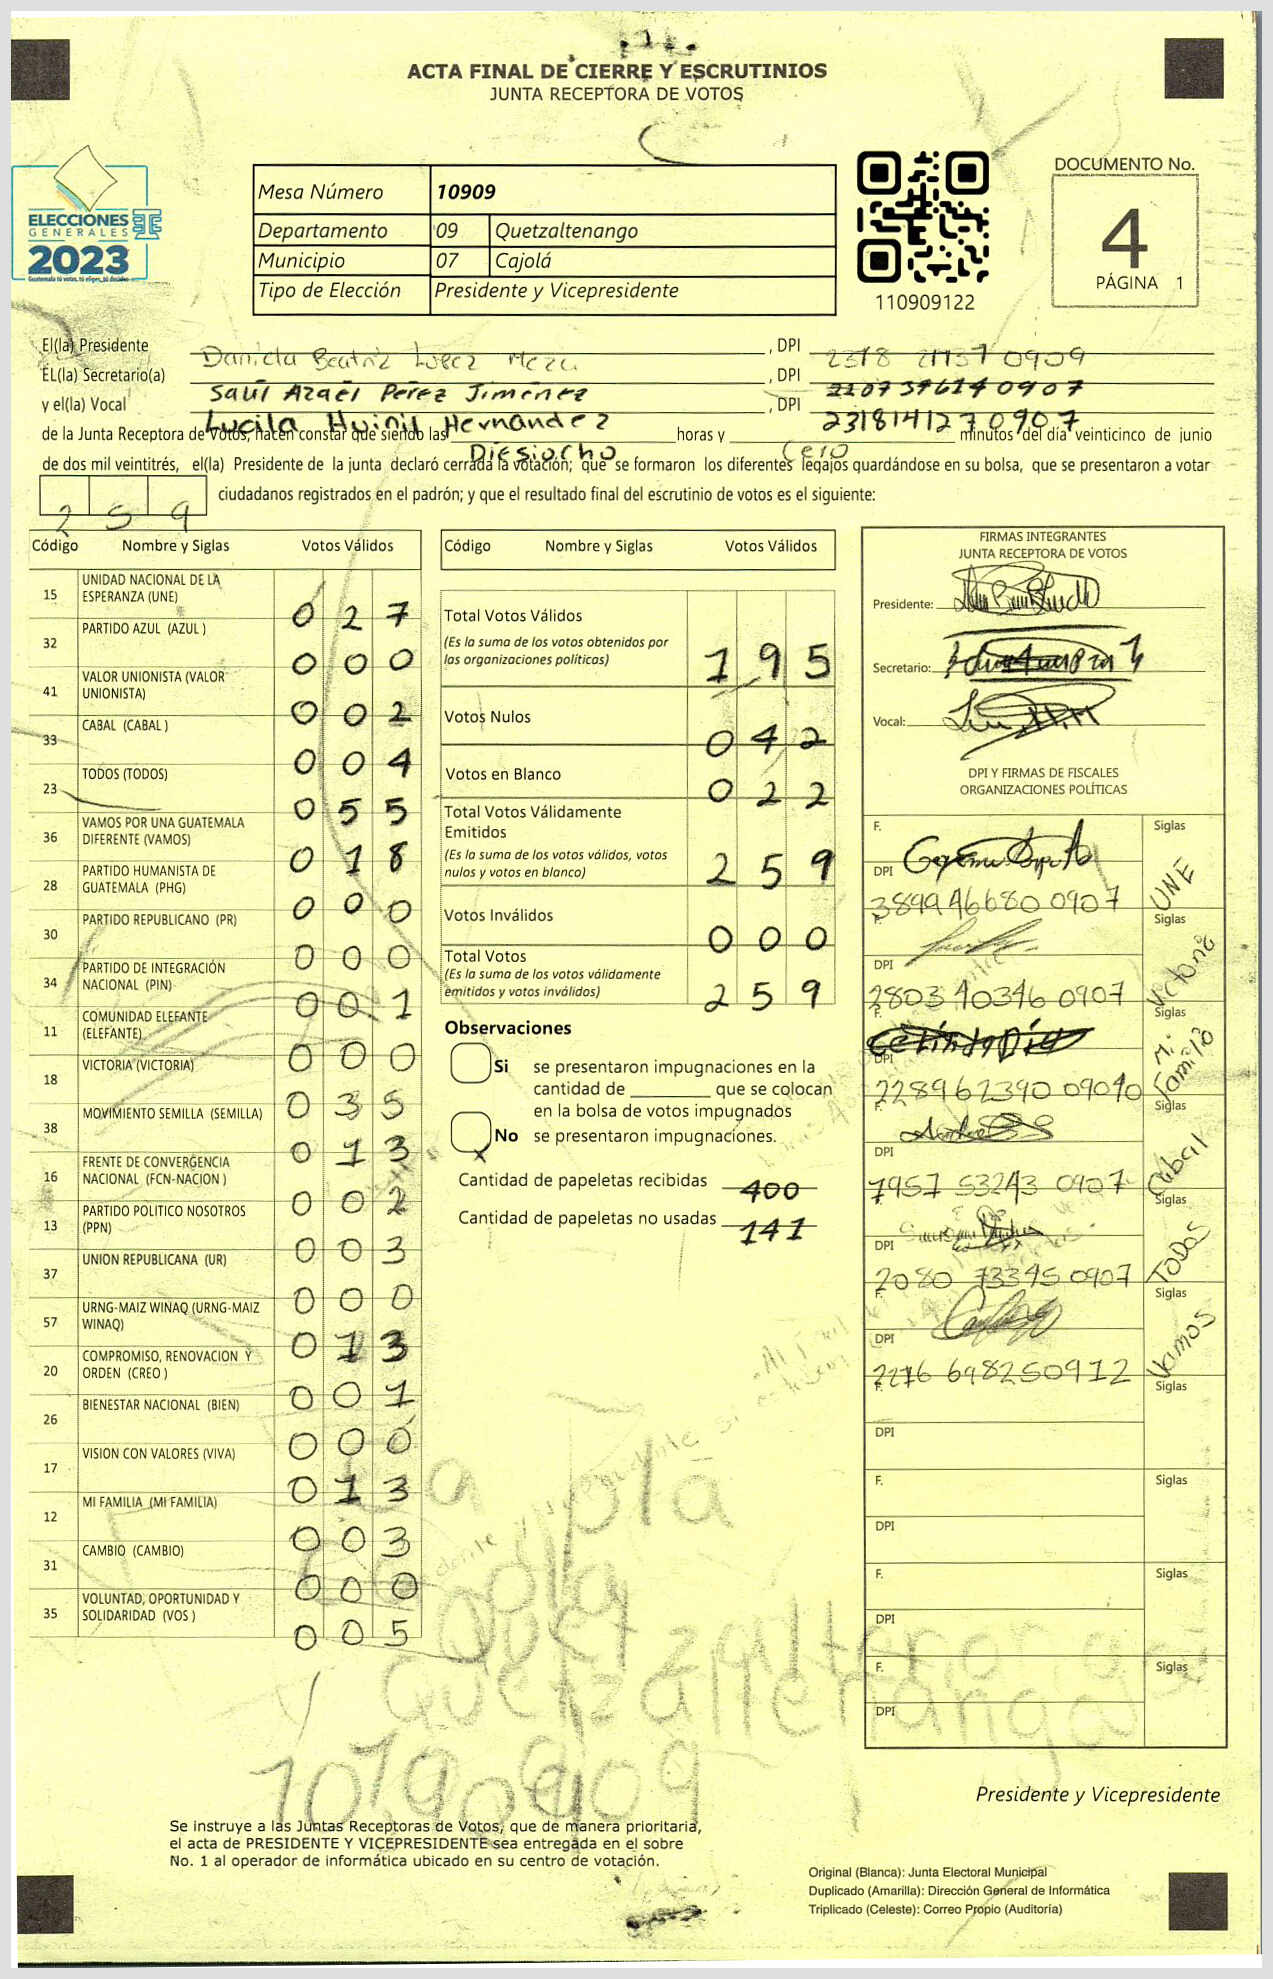 ACTA FINAL DE CIERRE Y ESCRUTINIOS
JUNTA RECEPTORA DE VOTOS
ELECCIONES
GENERALES
2023
Guatemala tú votas, tú eliges, tú decides
Mesa Número 10909
Departamento 09 Quetzaltenango
Municipio 07 Cajolá
Tipo de Elección Presidente y Vicepresidente
110909122
DOCUMENTO No.
4
PÁGINA 1
El(la) Presidente Daniela Beatriz Lopez Meza, DPI 0909
EL(la) Secretario(a) Saúl Azael Pérez Jiménez, DPI 0907
y el(la) Vocal Lucila Huinil Hernandez, DPI 231814127 0907
de la Junta Receptora de Votos, hacen constar que siendo las Diesiocho horas y Cero minutos del día veinticinco de junio
de dos mil veintitrés, el(la) Presidente de la junta declaró cerrada la votación; que se formaron los diferentes legajos guardándose en su bolsa, que se presentaron a votar
259 ciudadanos registrados en el padrón; y que el resultado final del escrutinio de votos es el siguiente:
Código Nombre y Siglas Votos Válidos
15 UNIDAD NACIONAL DE LA ESPERANZA (UNE) 0 2 7
32 PARTIDO AZUL (AZUL ) 0 0 0
41 VALOR UNIONISTA (VALOR UNIONISTA) 0 0 2
33 CABAL (CABAL ) 0 0 4
23 TODOS (TODOS) 0 5 5
36 VAMOS POR UNA GUATEMALA DIFERENTE (VAMOS) 0 1 8
28 PARTIDO HUMANISTA DE GUATEMALA (PHG) 0 0 0
30 PARTIDO REPUBLICANO (PR) 0 0 0
34 PARTIDO DE INTEGRACIÓN NACIONAL (PIN) 0 0 1
11 COMUNIDAD ELEFANTE (ELEFANTE) 0 0 0
18 VICTORIA (VICTORIA) 0 3 5
38 MOVIMIENTO SEMILLA (SEMILLA) 0 1 3
16 FRENTE DE CONVERGENCIA NACIONAL (FCN-NACION ) 0 0 2
13 PARTIDO POLITICO NOSOTROS (PPN) 0 0 3
37 UNION REPUBLICANA (UR) 0 0 0
57 URNG-MAIZ WINAQ (URNG-MAIZ WINAQ) 0 1 3
20 COMPROMISO, RENOVACION Y ORDEN (CREO ) 0 0 1
26 BIENESTAR NACIONAL (BIEN) 0 0 0
17 VISION CON VALORES (VIVA) 0 1 3
12 MI FAMILIA (MI FAMILIA) 0 0 3
31 CAMBIO (CAMBIO) 0 0 0
35 VOLUNTAD, OPORTUNIDAD Y SOLIDARIDAD (VOS ) 0 0 5
Código Nombre y Siglas Votos Válidos
Total Votos Válidos 1 9 5
(Es la suma de los votos obtenidos por
las organizaciones políticas)
Votos Nulos 0 4 2
Votos en Blanco 0 2 2
Total Votos Válidamente
Emitidos 2 5 9
(Es la suma de los votos válidos, votos
nulos y votos en blanco)
Votos Inválidos 0 0 0
Total Votos 2 5 9
(Es la suma de los votos válidamente
emitidos y votos inválidos)
Observaciones
Si se presentaron impugnaciones en la
cantidad de ________ que se colocan
en la bolsa de votos impugnados
No x se presentaron impugnaciones.
Cantidad de papeletas recibidas 400
Cantidad de papeletas no usadas 141
FIRMAS INTEGRANTES
JUNTA RECEPTORA DE VOTOS
Presidente:
Secretario:
Vocal:
DPI Y FIRMAS DE FISCALES
ORGANIZACIONES POLÍTICAS
F. Siglas UNE
DPI 389946680 0907
F. Siglas
DPI 280340346 0907
F. Siglas Mi Familia
DPI
F. Siglas Cabal
DPI 7957 53243 0907
F. Siglas TODOS
DPI 2080 73345 0907
F. Siglas Vamos
DPI 2276 698250912
F. Siglas
DPI
F. Siglas
DPI
F. Siglas
DPI
F. Siglas
DPI
Quetzaltenango
10909
Presidente y Vicepresidente
Se instruye a las Juntas Receptoras de Votos, que de manera prioritaria,
el acta de PRESIDENTE Y VICEPRESIDENTE sea entregada en el sobre
No. 1 al operador de informática ubicado en su centro de votación.
Original (Blanca): Junta Electoral Municipal
Duplicado (Amarilla): Dirección General de Informática
Triplicado (Celeste): Correo Propio (Auditoría)